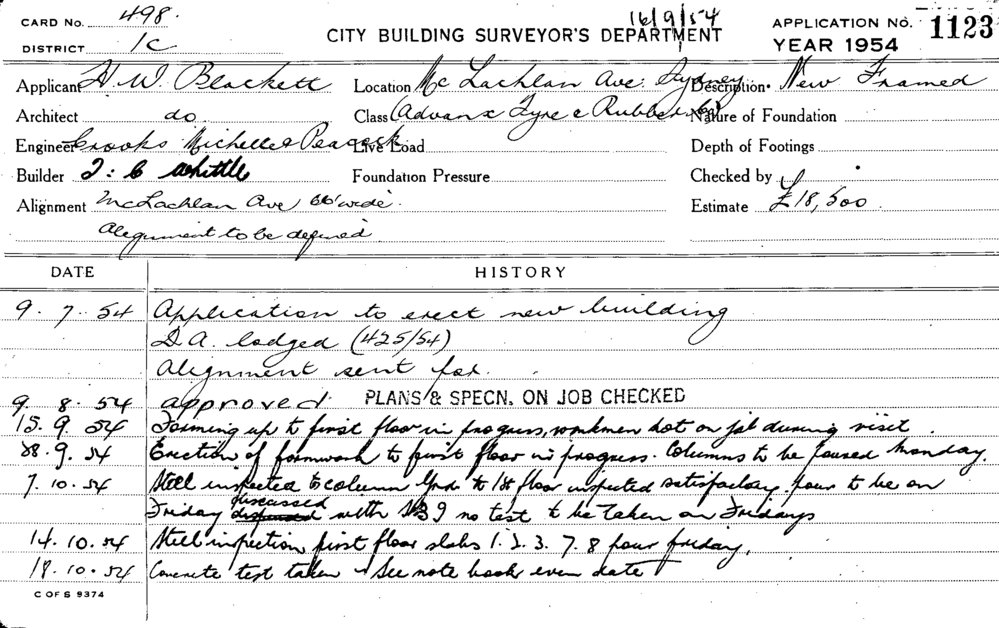 CARD No. 498. 16/9/54 APPLICATION No. 1123
DISTRICT 1C CITY BUILDING SURVEYOR'S DEPARTMENT YEAR 1954
Applicant H. W. Blackett Location McLachlan Ave: Sydney Description. New Framed
Architect do. Class (Advanx Tyre & Rubber Nature of Foundation
Engineer Crooks Michell & Peacock Live Load Depth of Footings
Builder J: C Whittle Foundation Pressure Checked by
Alignment McLachlan Ave 66' wide. Estimate £18,500.
Alignment to be defined
DATE HISTORY
9. 7. 54 Application to erect new building
D.A. lodged (425/54)
Alignment sent for.
9. 8. 54 approved. PLANS & SPECN. ON JOB CHECKED
15. 9. 54 Forming up to first floor in progress, workmen not on job during visit.
28. 9. 54 Erection of formwork to first floor in progress. Columns to be poured Monday.
7. 10. 54 Steel inspected to column Grd to 1st floor inspected satisfactory. pour to be on
Friday discussed with no test to be taken on Fridays
14. 10. 54 Steel inspection first floor slabs 1. 2. 3. 7. 8 pour friday.
18. 10. 54 Concrete test taken See note book even date
C OF S 9374